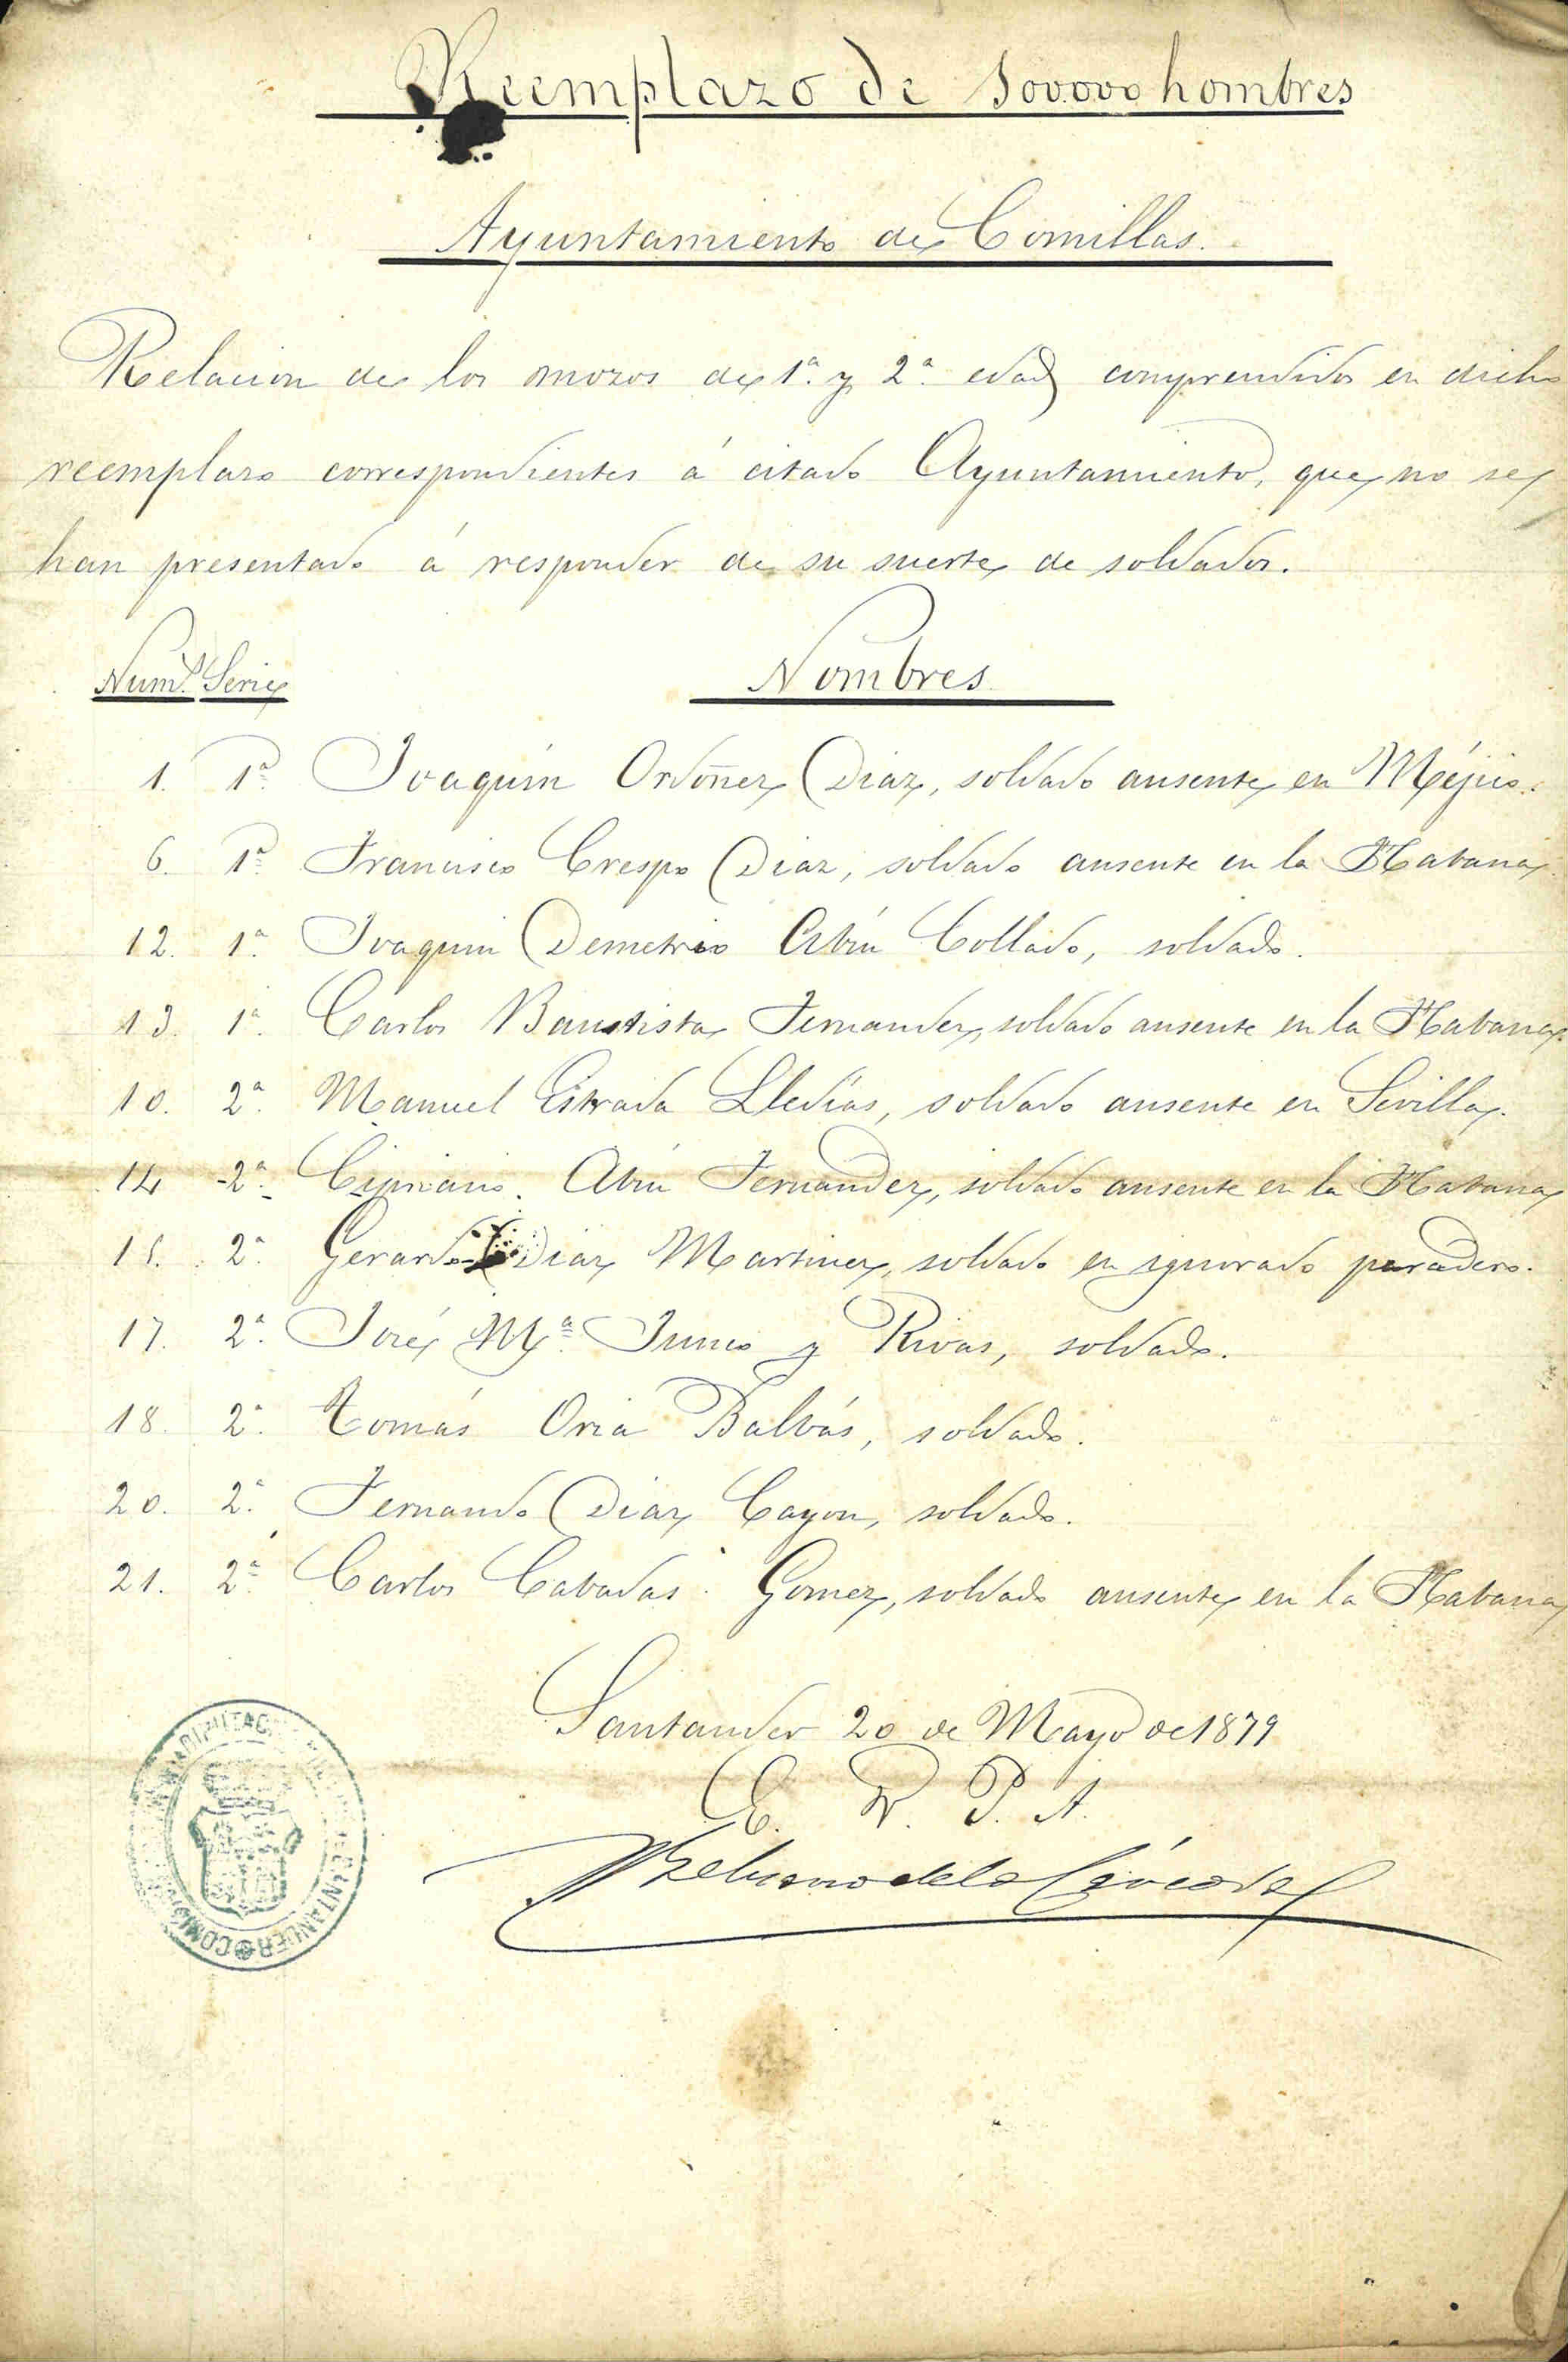 Reemplazo de 500.000 hombres
Ayuntamiento de Comillas.
Relacion de los mozos de 1ª y 2ª edad comprendidos en dicho
reemplazo correspondientes á citado Ayuntamiento, que no se
han presentado á responder de su suerte de soldados.
Numº Serie Nombres
1. 1ª Joaquin Ordoñez Diaz, soldado ausente en Méjico.
6. 1ª Francisco Crespo Diaz, soldado ausente en la Habana
12. 1ª Joaquin Demetrio Abin Collado, soldado.
13. 1ª Carlos Baustista Fernandez, soldado ausente en la Habana.
10. 2ª Manuel Estrada Lledias, soldado ausente en Sevilla.
14 2ª Cipriano. Abin Fernandez, soldado ausente en la Habana
15. 2ª Gerardo Diaz Martinez, soldado en ignorado paradero.
17. 2ª José Mª Junco y Rivas, soldado.
18. 2ª Tomás Oria Balbás, soldado.
20. 2ª Fernando Diaz Cayon, soldado.
21. 2ª Carlos Cabadas Gomez, soldado ausente en la Habana
Santander 20 de Mayo de 1879
E. V. P. A.
SANTANDER